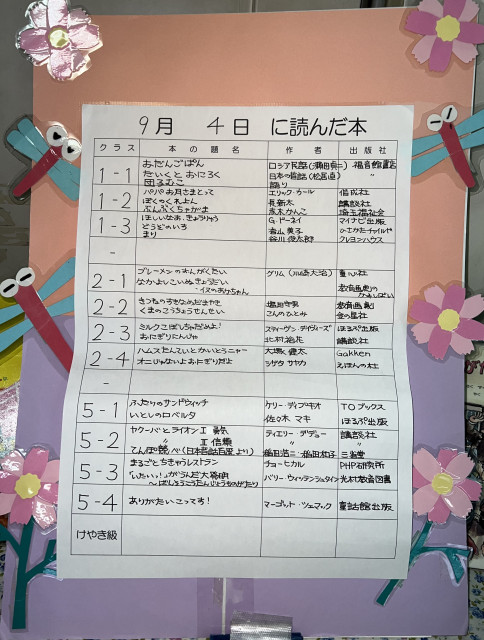 9月 4日 に読んだ本
クラス 本の題名 作者 出版社
1-1 おだんごぱん ロシア民話(瀬田貞二) 福音館書店
だいくと おにろく 日本の昔話(松居直) 〃
団るむこ 語り
1-2 パパ お月さまとって エリック・カール 偕成社
ぼくのくれよん 長新太 講談社
ぶんぶくちゃがま 埼玉福祉会
1-3 ほしいなあ、きょうりゅう マイナビ出版
どうどのいろ 香山美子 ひさかたチャイルド
まり 谷川俊太郎 クレヨンハウス
-
2-1 ブレーメンのおんがくたい グリム(川崎大治) 童心社
なかよしこいぬきょうだい 教育画劇の
・イヌのおかちゃん かみしばい
2-2 きつね 教育画劇
くまのこうちょうせんせい こんのひとみ 金の星社
2-3 ミルクこぼしちゃだめよ! スティーヴン・デイヴィーズ ほるぷ出版
おにぎりにんじゃ 北村裕花 講談社
2-4 ハムスたんていとかいとうニャー 大塚健太 Gakken
オニじゃないよおにぎりだよ シゲタサヤカ えほんの杜
-
5-1 ふたりのサンドウィッチ ケリー・ディプキオ TOブックス
いとしのロベルタ 佐々木マキ ほるぷ出版
5-2 ヤクーバとライオン Ⅰ 勇気 ティエリー・デデュー 講談社
〃 Ⅱ 信頼 〃 〃
てんぽ競べ(日本昔話百選より) 稲田浩二・稲田和子 三省堂
5-3 まるごとちきゅうレストラン チョーヒカル PHP研究所
「したい!」がうんだ大発明 バリー・ウィッテンシュタイン 光村教育図書
～ばんそうこうたんじょうものがたり
5-4 ありがたいこってす! マーゴット・ツェマック 童話館出版
けやき級